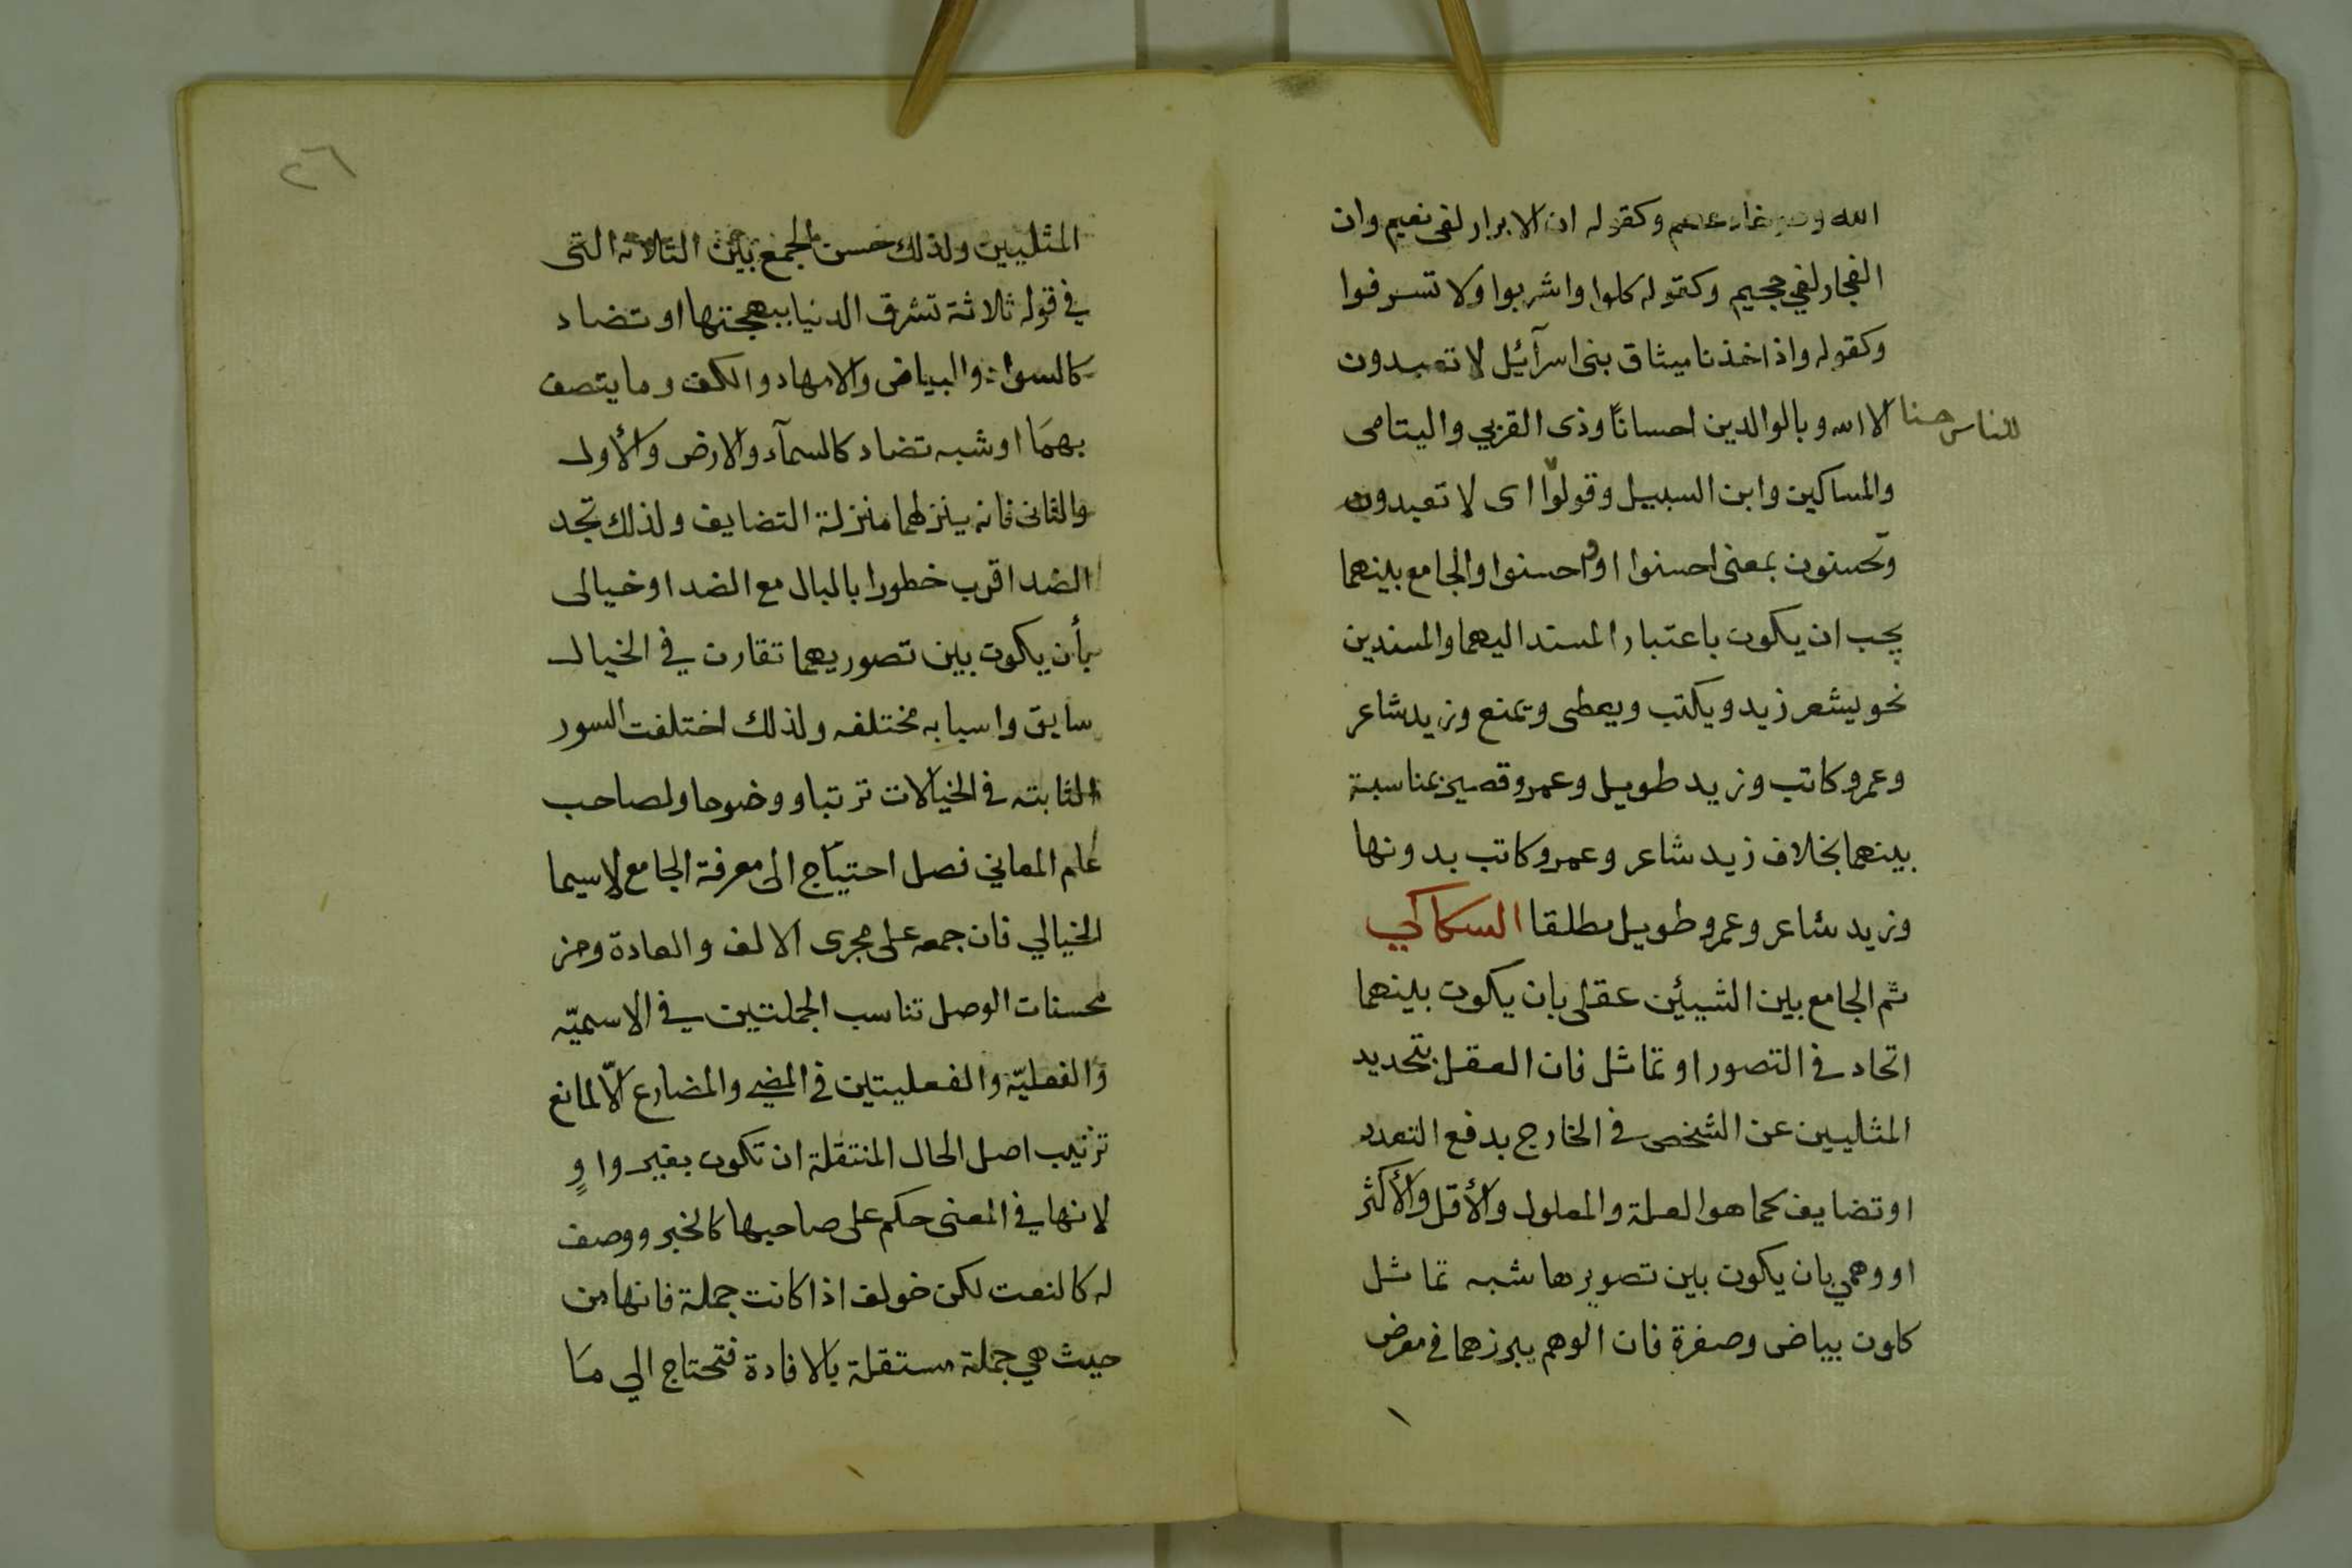 الله وهو خادعهم وكقوله ان الابرار لفى نعيم وان
الفجار لفي جحيم وكقوله كلوا واشربوا ولا تسرفوا
وكقوله واذ اخذنا ميثاق بنى اسرآئيل لا تعبدون
الا الله وبالوالدين احسانًا وذى القربي واليتامى
للناس حسنا
والمساكين وابن السبيل وقولوا اى لا تعبدون
وتحسنون بمعنى احسنوا او واحسنوا والجامع بينهما
يجب ان يكون باعتبار المسند اليهما والمسندين
نحو يشعر زيد ويكتب ويعطى ويمنع وزيد شاعر
وعمرو كاتب وزيد طويل وعمرو قصير بمناسبة
بينهما بخلاف زيد شاعر وعمرو كاتب بدونها
وزيد شاعر وعمرو طويل مطلقا السكاكي
ثم الجامع بين الشيئين عقلى بان يكون بينهما
اتحاد في التصور او تماثل فان العقل بتجديد
المثليين عن الشخص في الخارج بدفع التعدد
او تضايف كما هو العلة والمعلول والأقل والأكثر
او وهمي بان يكون بين تصويرها شبه تماثل
كلون بياض وصفرة فان الوهم يبرزهما في معرض
٢٦
المثليين ولذلك حسن الجمع بين الثلاثه التى
في قوله ثلاثة تشرق الدنيا ببهجتها او تضاد
كالسواد والبياض والامهاد والكف وما يتصف
بهما او شبه تضاد كالسمآء والارض والأول
والثانى فانه ينزلهما منزلة التضايف ولذلك تجد
الضد اقرب خطورا بالبال مع الضد او خيالى
بأن يكون بين تصوريهما تقارن في الخيال
سابق واسبابه مختلفه ولذلك اختلفت السور
الثابته في الخيالات ترتبا ووضوحا ولصاحب
علم المعاني فصل احتياج الى معرفة الجامع لاسيما
الخيالي فان جمعه على مجرى الالف والعادة ومن
محسنات الوصل تناسب الجملتين في الاسميّه
والفعليّة والفعليتين في المضي والمضارع الّا لمانع
ترتيب اصل الحال المنتقلة ان تكون بغير واوٍ
لانها في المعنى حكم على صاحبها كالخبر ووصف
له كالنعت لكن خولف اذا كانت جملة فانها من
حيث هي جملة مستقلة بالافادة فتحتاج الي ما